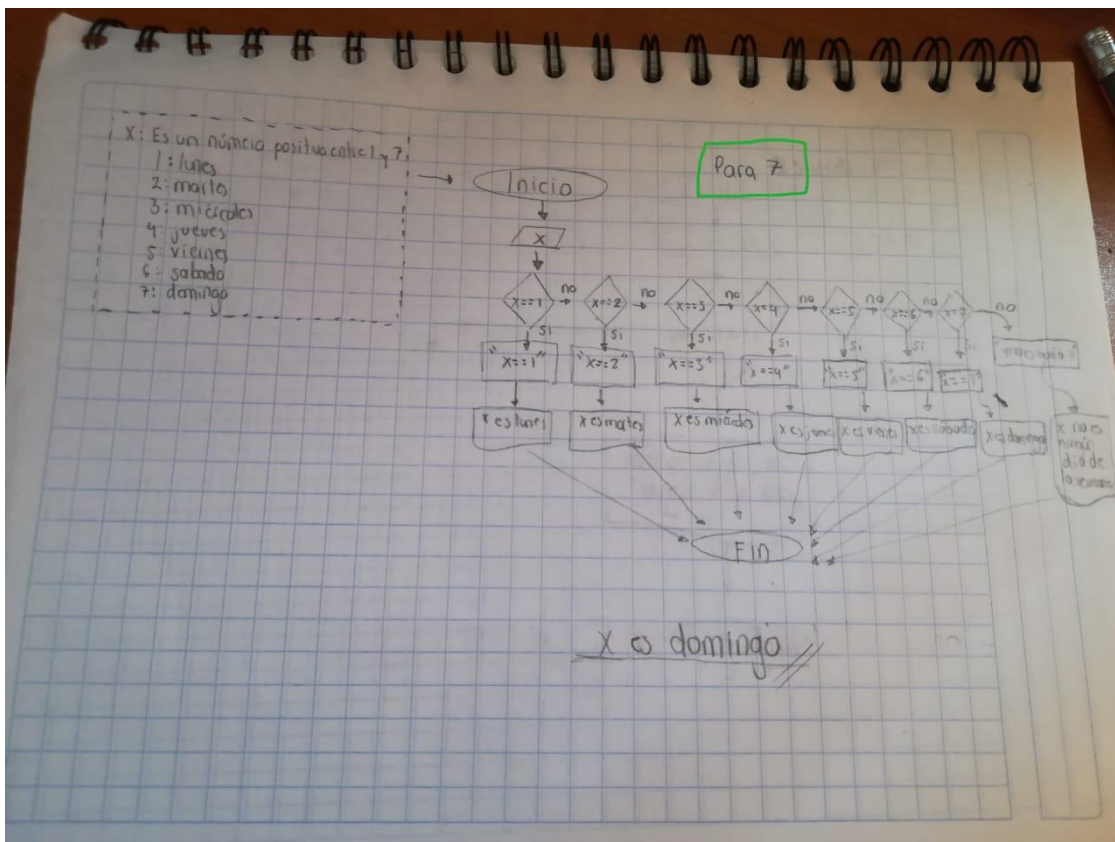 X: Es un número positivo entre 1 y 7:
1: lunes
2: martes
3: miércoles
4: jueves
5: viernes
6: sabado
7: domingo
Para 7
Inicio
X
X==1 no X==2 no X==3 no X=4 no X==5 no X==6 no X=7 no
Si Si Si Si Si Si Si
"X==1" "X==2" "X==3" "X==4" "X==5" "X==6" "X==7"
X es lunes X es martes X es miércoles X es jueves X es viernes X es sabado X es domingo
X no es
ningún
día de
la semana
Fin
X es domingo